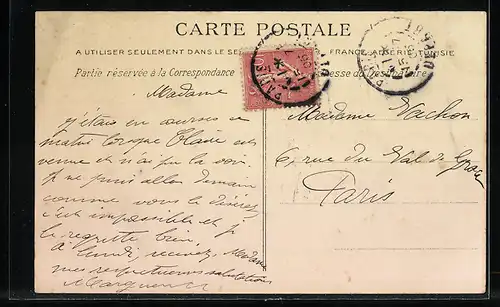 CARTE POSTALE
A UTILISER SEULEMENT DANS LE SE FRANCE, ALGÉRIE, TUNISIE
Partie réservée à la Correspondance
esse du Destinataire
Madame
j'étais en courses ce
matin lorsque Claire est
venue et n'ai pu la voir.
Je ne puis aller demain
comme vous le désirez
c'est impossible et je
le regrette bien.
A lundi, recevez, Madame
mes respectueuses salutations
Marguerite
Madame Vachon
6, rue du Val de Grâce
Paris